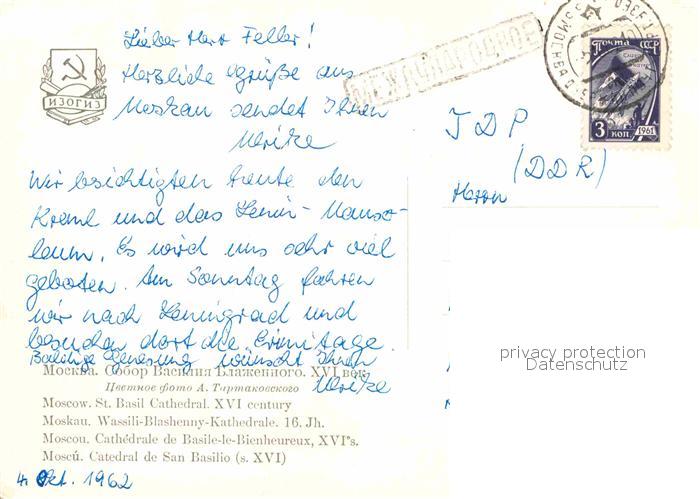 Lieber Herr Feller!
Herzliche Grüße aus
Moskau sendet Ihnen
Ulrike
Wir besichtigten heute den
Kreml und das Lenin-Mauso-
leum. Es wird uns sehr viel
geboten. Am Sonntag fahren
wir nach Leningrad und
besuchen dort die Ermitage.
Baldige Genesung wünscht Ihnen
Ulrike
4. Okt. 1962
ИЗОГИЗ
МЕЖДУНАРОДНОЕ
Почта СССР
3 коп
1961
ГДР
(DDR)
Herrn
privacy protection
Datenschutz
Москва. Собор Василия Блаженного. XVI век
Цветное фото А. Тартаковского
Moscow. St. Basil Cathedral. XVI century
Moskau. Wassili-Blashenny-Kathedrale. 16. Jh.
Moscou. Cathédrale de Basile-le-Bienheureux, XVIᵉs.
Moscú. Catedral de San Basilio (s. XVI)